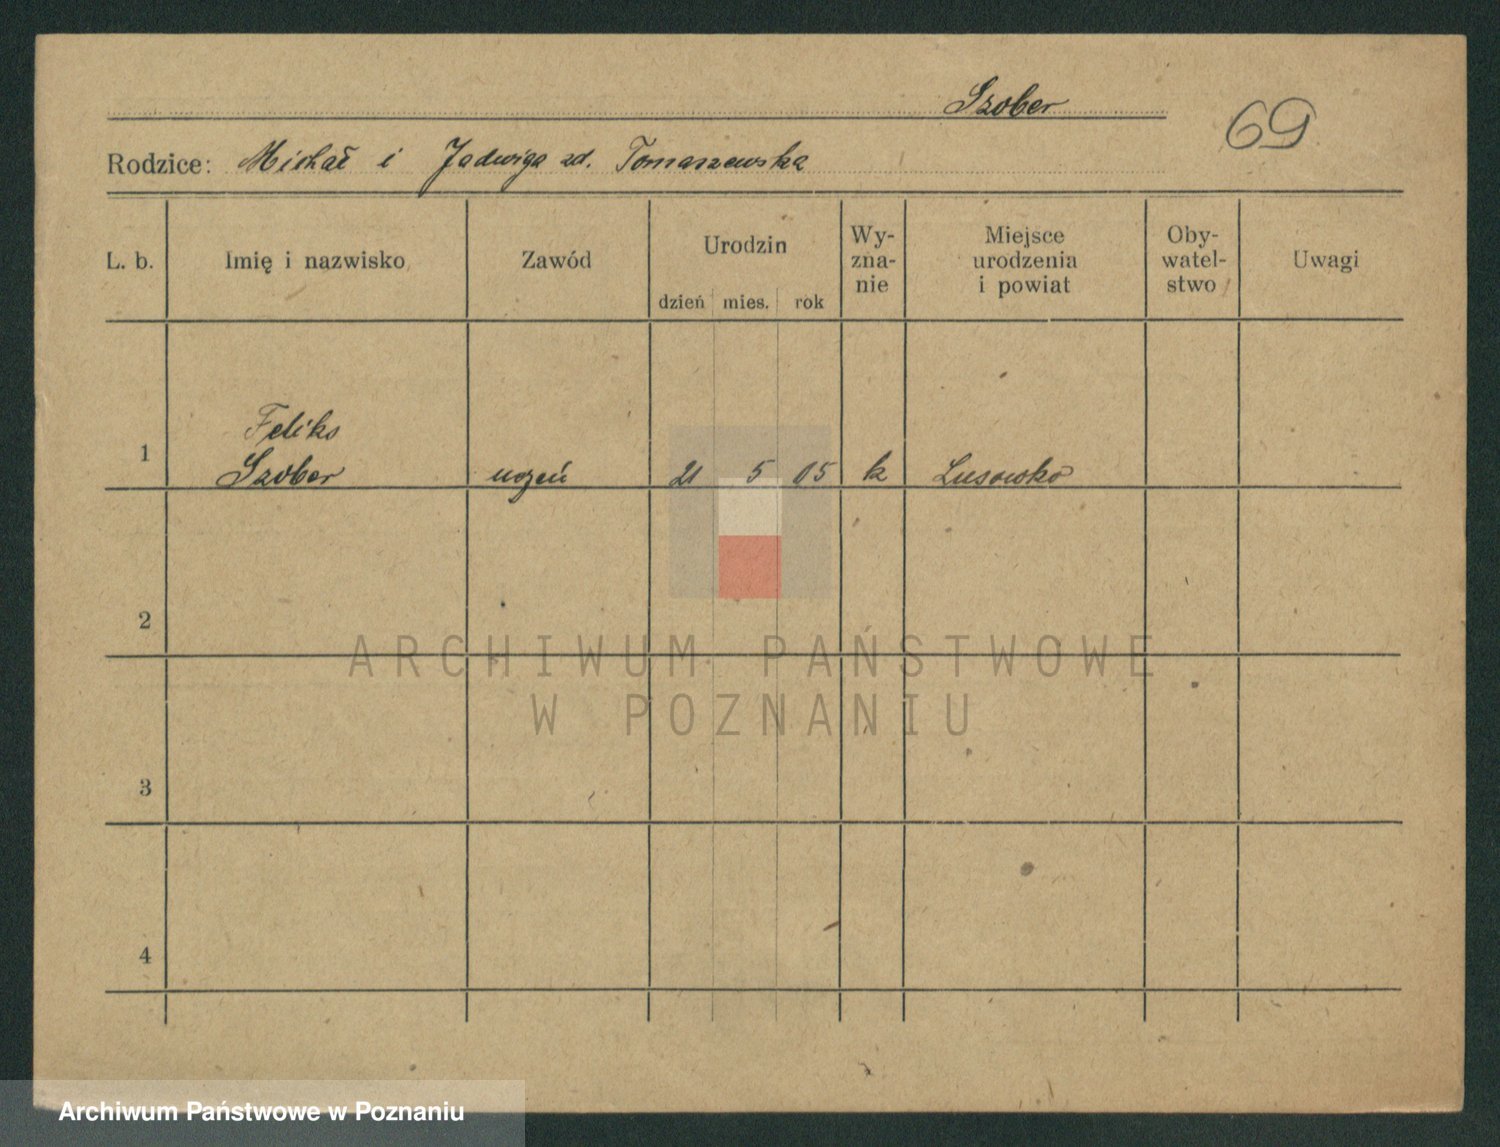 Szober
69
Rodzice: Michał i Jadwiga zd. Tomaszewska
L. b.
Imię i nazwisko
Zawód
Urodzin
dzień mies. rok
Wy-
zna-
nie
Miejsce
urodzenia
i powiat
Oby-
watel-
stwo
Uwagi
Feliks
1 Szober uczeń 21 5 05 k Lusowko
2
3
4
ARCHIWUM PAŃSTWOWE
W POZNANIU
Archiwum Państwowe w Poznaniu